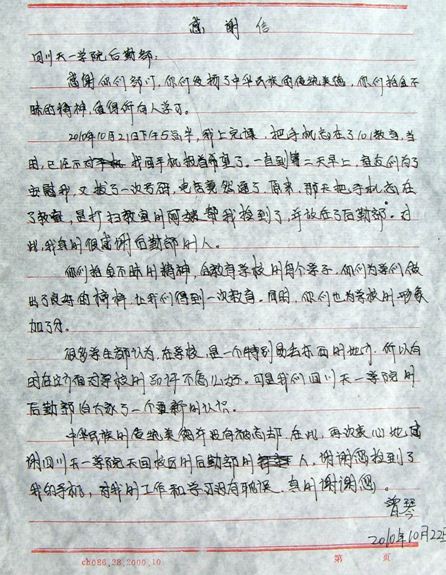 感谢信
四川天一学院后勤部:
感谢你们部门,你们发扬了中华民族的传统美德,你们拾金不
昧的精神,值得所有人学习。
2010年10月21日下午5点半,我上完课,把手机忘在了101教室,当
时,已经不对我因手机抱着希望了。一直到第二天早上,朋友们为了
安慰我,又拨了一次号码,电话竟然通了。原来,那天把手机忘在
了教室,是打扫教室的阿姨帮我捡到了,并放在了后勤部。对
此我真的很感谢后勤部的人。
你们拾金不昧的精神,在教育学校的每个学子,你们为学们做
出了良好的榜样,让我们得到一次教育。同时,你们也为学校的形象
加了分。
很多学生都认为,在学校,是一个特别易丢东西的地方,所以有
时在这方面对学校的评不高
可是我们四川天一学院的
后勤部给大家了一个重新的认识。
中华民族的传统美德并没有被
在此,再次衷心地感
谢四川天一学院天回校区的后勤部的人,谢谢您捡到了
我的手机,对我的工作和学习没有耽误,真的谢谢您。
曾琴
2010年10月22日
cho86.28.2000.10
第 页